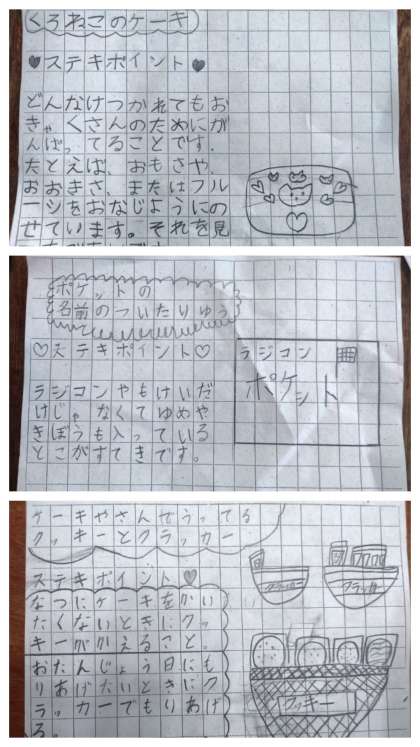 くろねこのケーキ
♥ステキポイント♥
どんなにつかれてもお
きゃくさんのためにが
んばってることです。
たとえば、おもさや、
おおきさ、またはフル
ーツをおなじようにの
せています。それを見
ポケットの
名前のついたりゆう
♡ステキポイント♡
ラジコンやもけいだ
けじゃなくてゆめや
きぼうも入っている
とこがすてきです。
ラジコン
ポケット
ケーキやさんでうってる
クッキーとクラッカー
ステキポイント♥
なつにケーキをかい
たくないときにクッ
キーがかえること。
おたんじょう日にも
りあげたいときにク
ラッカーでもりあげ
る。
クラッカー
クラッカー
クッキー